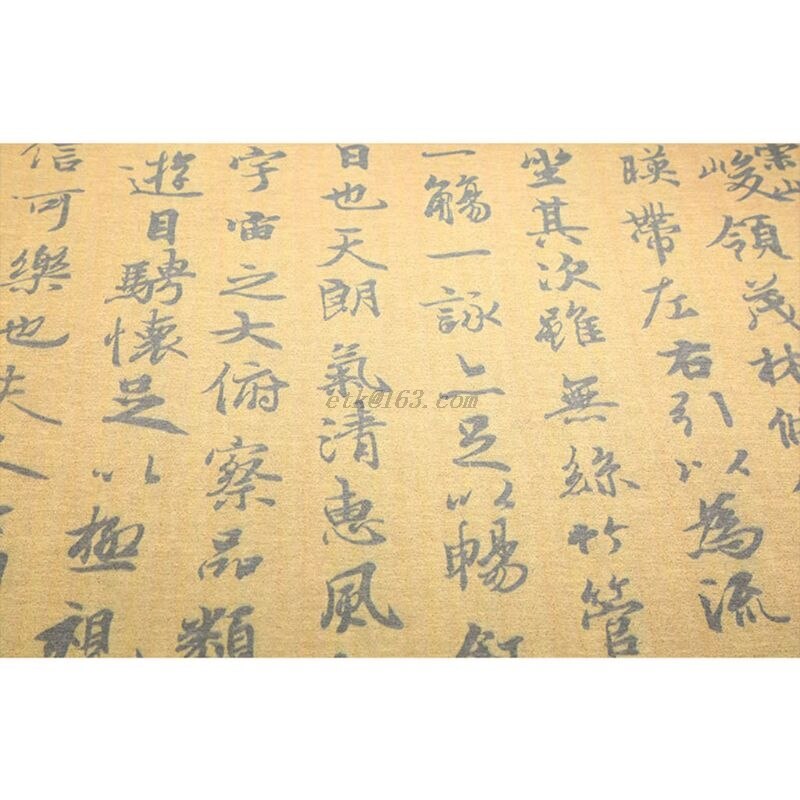 崇山
峻領茂林脩
暎帶左右引以為流
坐其次雖無絲竹管
一觴一詠亦足以暢敘
日也天朗氣清惠風
宇宙之大俯察品類
遊目騁懷足以極視
信可樂也夫人
etk@163.com